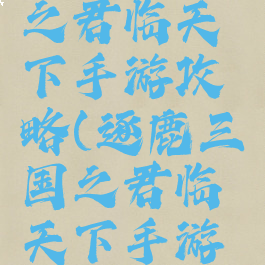 之君临天
下手游攻
略(逐鹿三
国之君临
天下手游